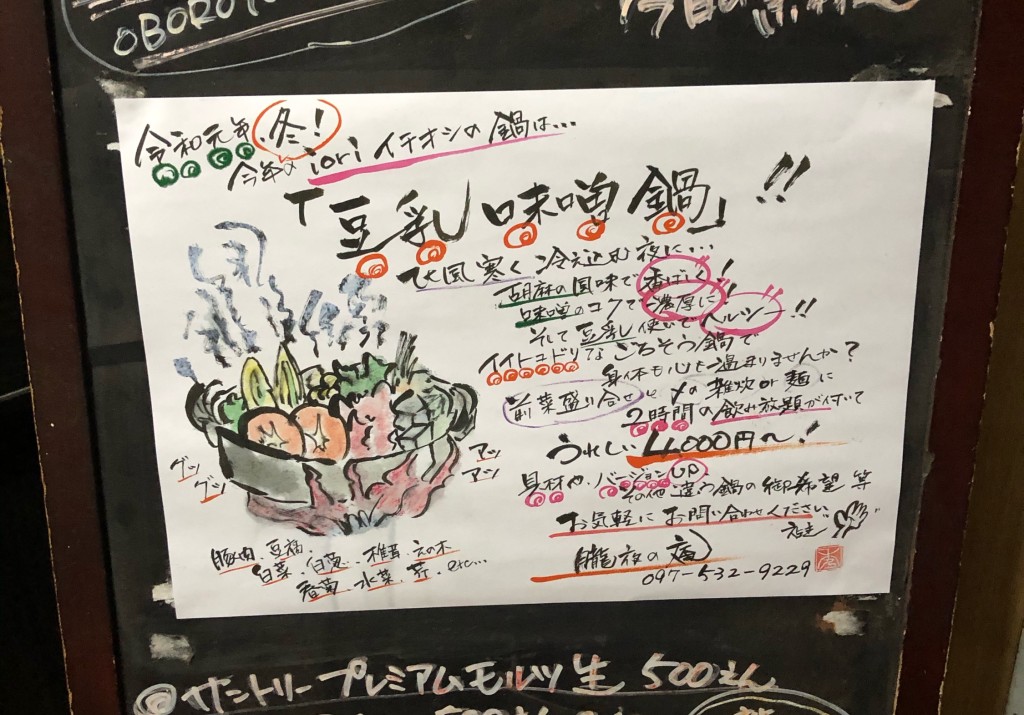 OBORO
今日の
令和元年、冬!
今年の iori イチオシの鍋は…
「豆乳味噌鍋」!!
ひえ風寒く冷え込む夜に…
胡麻の風味で香ばしく!
味噌のコクで濃厚に!
そして豆乳使いでヘルシー!!
イイトコドリなごちそう鍋で
身体も心も温まりませんか?
前菜盛り合せと〆の雑炊or麺に
2時間の飲み放題が付いて
うれしい 4,000円〜!
具材や、バージョンUP
その他違う鍋の御希望等
お気軽にお問い合わせください。
店主
朧夜の庵
097-532-9229
グツ
グツ
アツ
アツ
豚肉、豆腐、
白菜、白葱、椎茸、えの木
春菊、水菜、芹、etc…
◎サントリープレミアムモルツ生 500えん
500えん